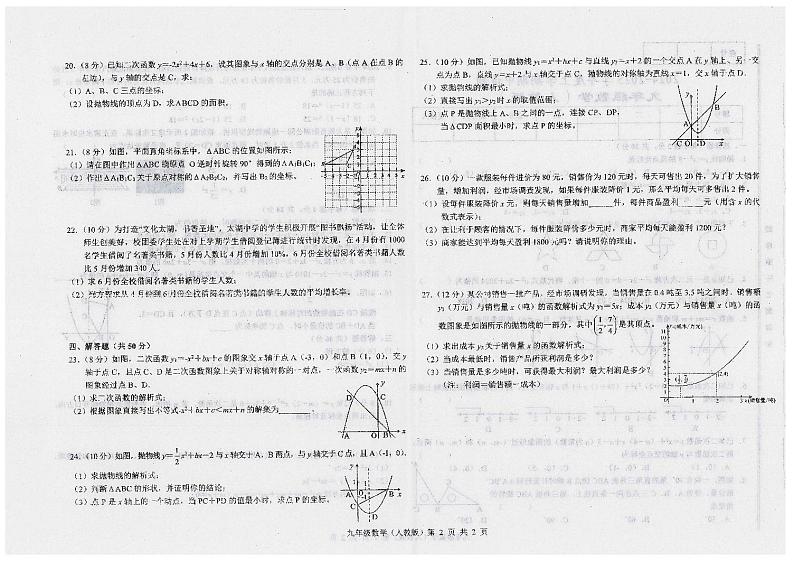 20.（8分）已知二次函数y=-2x²+4x+6，设其图象与x轴的交点分别是A、B（点A在点B的
左边），与y轴的交点是C，求：
（1）A、B、C三点的坐标；
（2）设抛物线的顶点为D，求△BCD的面积。
21.（8分）如图，平面直角坐标系中，△ABC的位置如图所示：
（1）请在图中作出△ABC绕原点O逆时针旋转90°得到的△A₁B₁C₁；
（2）作出△A₁B₁C₁关于原点对称的△A₂B₂C₂，并写出B₂的坐标。
22.（10分）为打造“文化太湖，书香圣地”，太湖中学的学生积极开展“图书飘扬”活动，让全体
师生创美好，校团委学生处在对上学期学生借阅登记簿进行统计时发现，在4月份有1000
名学生借阅了名著类书籍，5月份人数比4月份增加10%，6月份全校借阅名著类书籍人数
比5月份增加340人。
（1）求6月份全校借阅名著类书籍的学生人数；
（2）列方程求从4月份到6月份全校借阅名著类书籍的学生人数的平均增长率。
四、解答题（共50分）
23.（8分）如图，二次函数y₁=-x²+bx+c的图象交x轴于点A（-3，0）和点B（1，0），交y
轴于点C，且点C、D是二次函数图象上关于对称轴对称的一对点，一次函数y₂=mx+n的
图象经过点B、D.
（1）求二次函数的解析式；
（2）根据图象直接写出不等式-x²+bx+c<mx+n的解集为________.
24.（10分）如图，抛物线y=1/2x²+bx-2与x轴交于A，B两点，与y轴交于C点，且A（-1，0）.
（1）求抛物线的解析式；
（2）判断△ABC的形状，并证明你的结论；
（3）点P是x轴上的一个动点，当PC+PD的值最小时，求点P的坐标。
25.（10分）如图，已知抛物线y₁=x²+bx+c与直线y₂=x+2的一个交点A在y轴上、另一交
点为点B，直线y=x+2与x轴交于点C，抛物线的对称轴为直线x=1，交x轴于点D.
（1）求抛物线的解析式；
（2）直接写出y₁>y₂时x的取值范围；
（3）点P是抛物线上A、B之间的一点，连接CP、DP，
当△CDP面积最小时，求点P的坐标。
26.（10分）一款服装每件进价为80元，销售价为120元时，每天可售出20件，为了扩大销售
量，增加利润，经市场调查发现，如果每件服装降价1元，那么平均每天可多售出2件。
（1）设每件服装降价x元，则每天销售量增加____件，每件商品盈利____元（用含x的代
数式表示）；
（2）在让利于顾客的情况下，每件服装降价多少元时，商家平均每天能盈利1200元？
（3）商家能达到平均每天盈利1800元吗？请说明你的理由。
27.（12分）某公司销售一批产品，经市场调研发现，当销售量在0.4吨至3.5吨之间时，销售额
y₁（万元）与销售量x（吨）的函数解析式为y₁=5x；成本y₂（万元）与销售量x（吨）的函
数图象是如图所示的抛物线的一部分，其中（1/2，7/4）是其顶点。
（1）求出成本y₂关于销售量x的函数解析式；
（2）当成本最低时，销售产品所获利润是多少？
（3）当销售量是多少吨时，可获得最大利润？最大利润是多少？
（注：利润=销售额-成本）
九年级数学（人教版）第2页 共2页